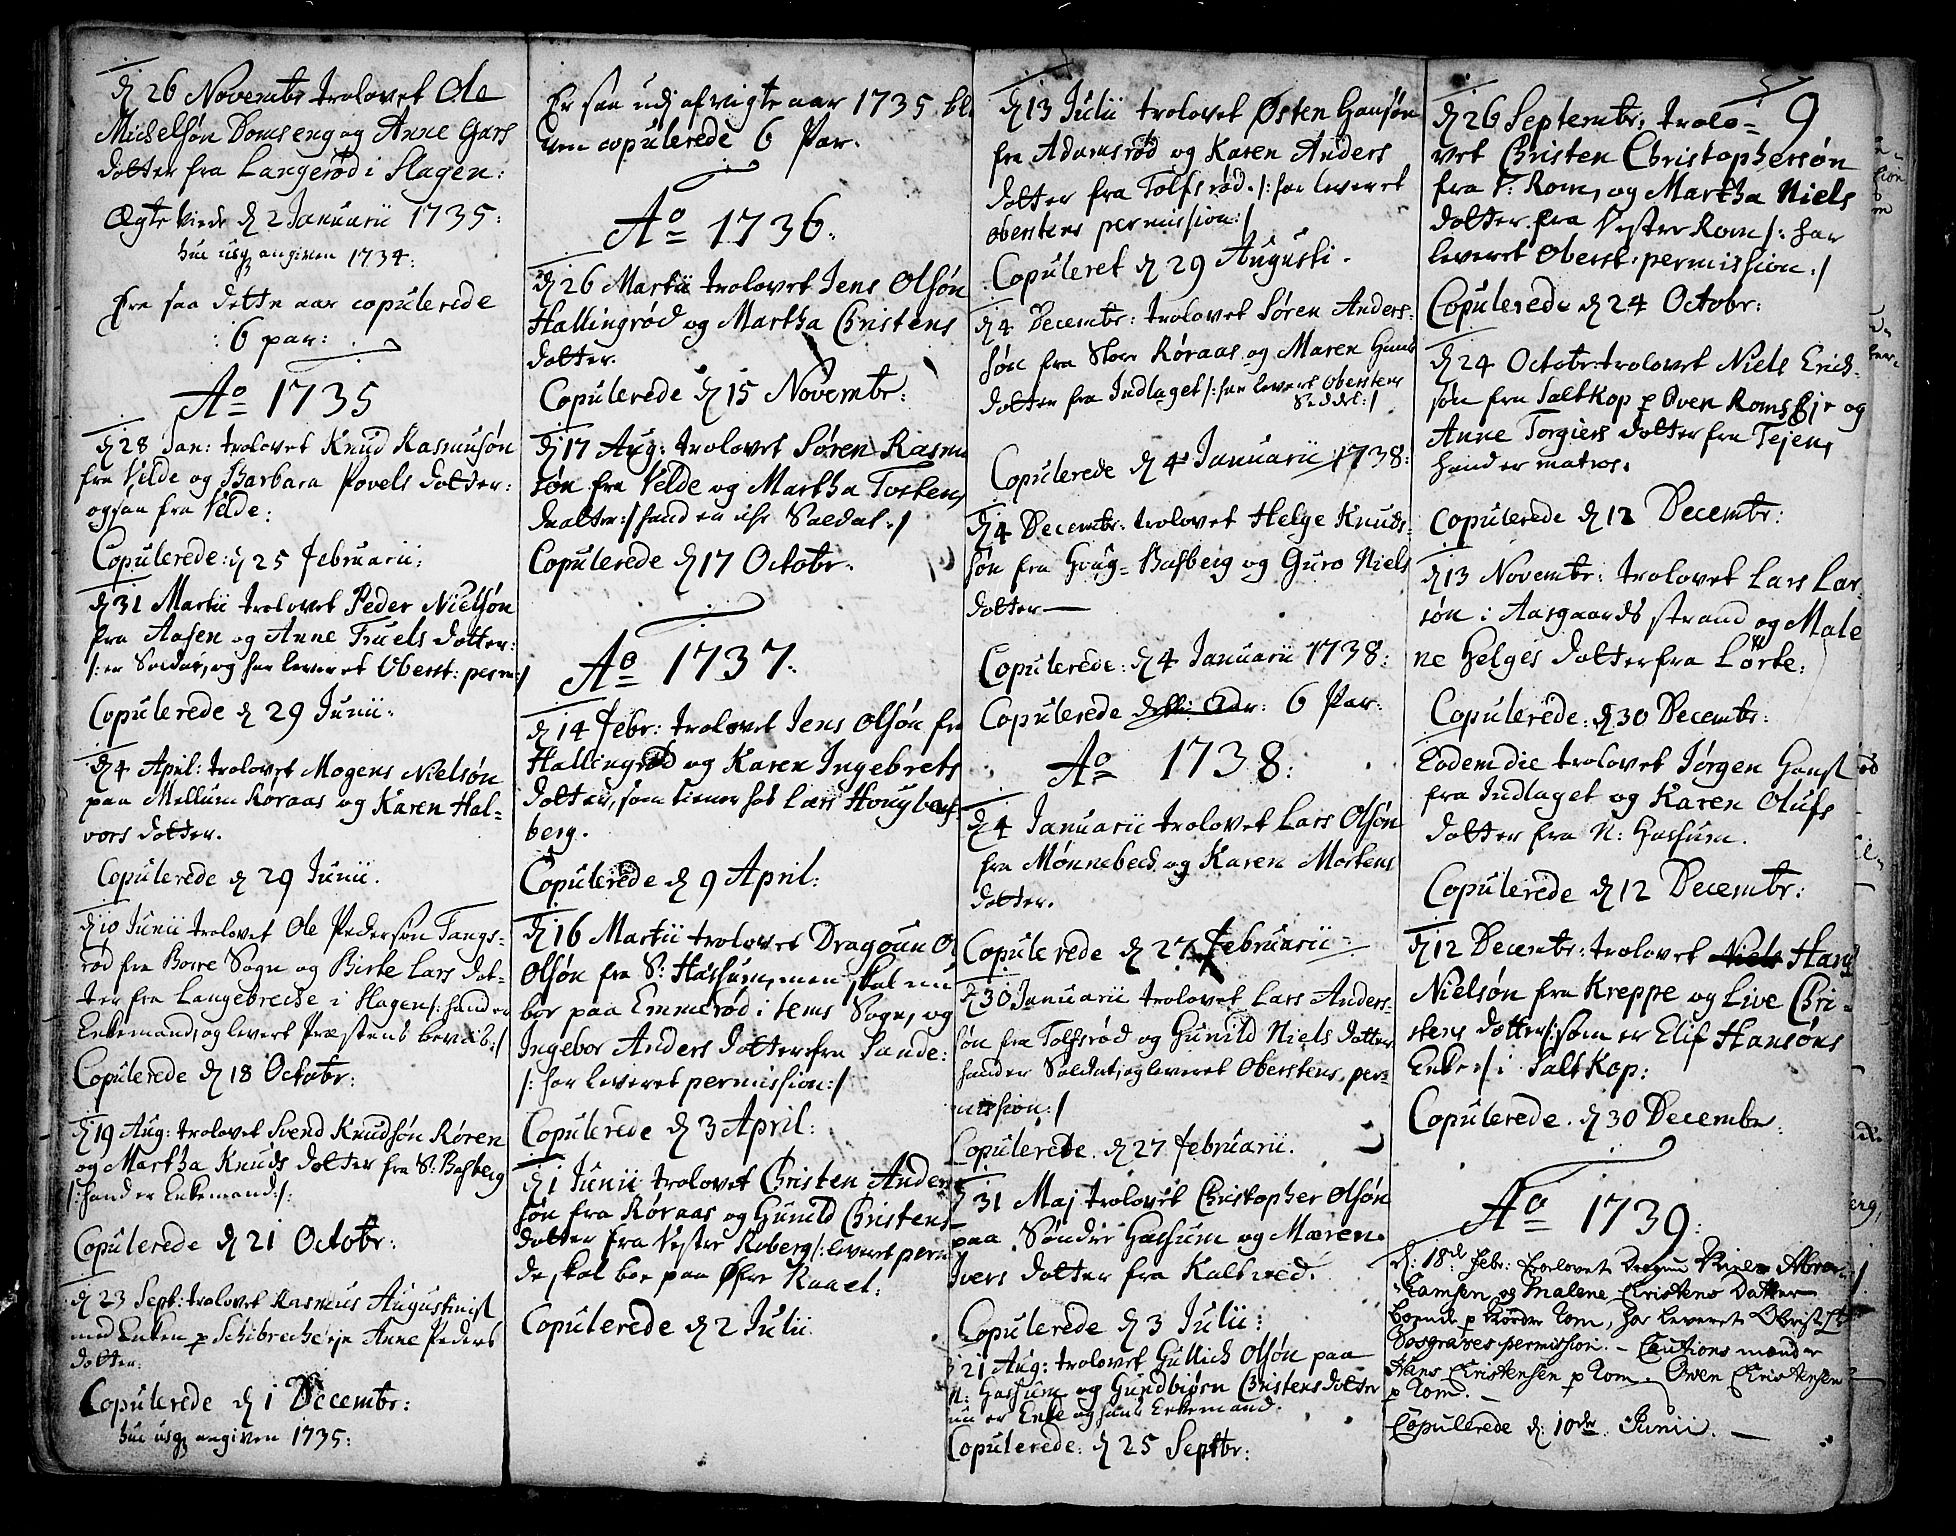 d 26 Novembr trolovet Ole
Michelsøn Domseng og Anne Gars
dotter fra Langerød i Slagen:
Ægte Viede d 2 Januarii 1735:
huc usq angiven 1734:
Ere saa dette aar copulerede
: 6 par:
Ao 1735
d 28 Jan: trolovet Knud Rasmusøn
fra Velde og Barbara Povels dotter:
ogsaa fra Velde:
Copulerede: d 25 Februarii:
d 31 Martii trolovet Peder Nielsøn
fra Aasen og Anne Truels dotter:
/: er Soldat, og har leveret Oberst: perm:/
Copulerede d 29 Junii:
d 4 April: trolovet Mogens Nielsøn
paa Mellum Røraas og Karen Hal=
vors dotter.
Copulerede d 29 Junii.
d 10 Junii trolovet Ole Pedersøn Tangs=
rød fra Borre Sogn og Birte Lars dot=
ter fra Langebreche i Slagen /: hand er
Enkemand, og levert Præstens beviis :/
Copulerede d 18 Octobr:
d 19 Aug: trolovet Svend Knudsøn Røren
og Martha Knuds dotter fra S: Basberg
/: hand er Enkemand :/:
Copulerede d 21 Octobr:
d 23 Sept: trolovet Rasmus Augustini
med Enken p Schibrecheje Anne Peders
dotter:
Copulerede d 1 Decembr:
huc usq angiven 1735:
Er saa udj afvigte aar 1735 ble
ven copulerede 6 Par.
Ao 1736.
d 26 Martii trolovet Jens Olsøn
Hallingrød og Martha Christens
dotter.
Copulerede d 15 Novembr:
d 17 Aug: trolovet Søren Rasmu
søn fra Velde og Martha Torkens
daatter :/ hand er Soldat :/
Copulerede d 17 Octobr.
Ao 1737.
d 14 Febr: trolovet Jens Olsøn fra
Hallingrød og Karen Ingebrets
dotter, som tiener hos Lars Hougbas=
berg.
Copulerede d 9 April:
d 16 Martii trolovet Dragoun O
Olsøn fra S: Hassum, men skal nu
boe paa Emmerød i Sems Sogn, og
Ingebor Anders dotter fra Sande:
/: har leveret permission :/
Copulerede d 3 April:
d 1 Junii trolovet Christen Anders
søn fra Røraas og Gunild Christens
dotter fra Vestre Roberg /: leveret perm
de skal boe paa Øfre Raael:
Copulerede d 2 Julii.
d 13 Julii trolovet Østen Hansøn
fra Adamsrød og Karen Anders
dotter fra Tolfsrød. /: har leveret
oberstens permission :/
Copuleret d 29 Augusti.
d 4 Decembr: trolovet Søren Anders=
søn fra Store Røraas og Maren Hans
dotter fra Indlaget /: har levert Oberstens
Seddel :/
Copulerede d 4 Januarii 1738:
d 4 Decembr. trolovet Helge Knuds=
søn fra Houg=Basberg og Guro Niels
dotter
Copulerede: d 4 Januarii 1738:
Copulerede dette Aar: 6 Par:
Ao 1738:
d 4 Januarii trolovet Lars Olsøn
fra Mønnebeck og Karen Mortens
dotter.
Copulerede d 27 Februarii
d 30 Januarii trolovet Lars Anders=
søn fra Tolfsrød og Gunild Niels dotter
hand er Soldat, og leveret Oberstens per=
mission :/
Copulerede. d 27 Februarii.
d 31 Maj trolovet Christopher Olsøn
paa Søndre Hassum og Maren
Ivers dotter fra Kaldved.
Copulerede d 3 Julii:
d 21 Aug: trolovet Gullich Olsøn paa
N: Hassum og Gundbiørn Christens dotter
nu er Enke og hand Enkemand.
Copulerede: d 25 Septbr:
9
d 26 Septembr. trolo=
vet Christen Christophersøn
fra V: Rom, og Martha Niels
dotter fra Vester Rom /: har
leveret Oberst: permission :/
Copulerede d 24 Octobr:
d 24 Octobr: trolovet Niels Erich=
søn fra Saltkop p Øven Romseje og
Anne Torgiers dotter fra Tejen,
hand er matros.
Copulerede d 12 Decembr:
d 13 Novembr: trolovet Lars Lar=
søn i Aasgaards strand og Male
ne Helges dotter fra Lørke:
Copulerede: d 30 Decembr:
Eodem die trolovet Jørgen Hans
fra Indlaget og Karen Olufs
dotter fra N: Hassum.
Copulerede d 12 Decembr:
d 12 Decembr: trolovet Niels Hans
Nielsøn fra Kreppe og Live Chri=
stens dotter /: som er Elif Hansøns
Enke :/ i Saltkop:
Copulerede. d 30 Decembr
Ao 1739:
d: 18de Febr: Trolovet Dragon Niels Abra=
hamsen og Malene Christens Datter
boende p Nordre Rom, har leveret Obrist
permission. - Cautions mænder
Hans Christensen p Rom. Oven Christensen
p Rom. -
Copulerede d: 10de Junii. -